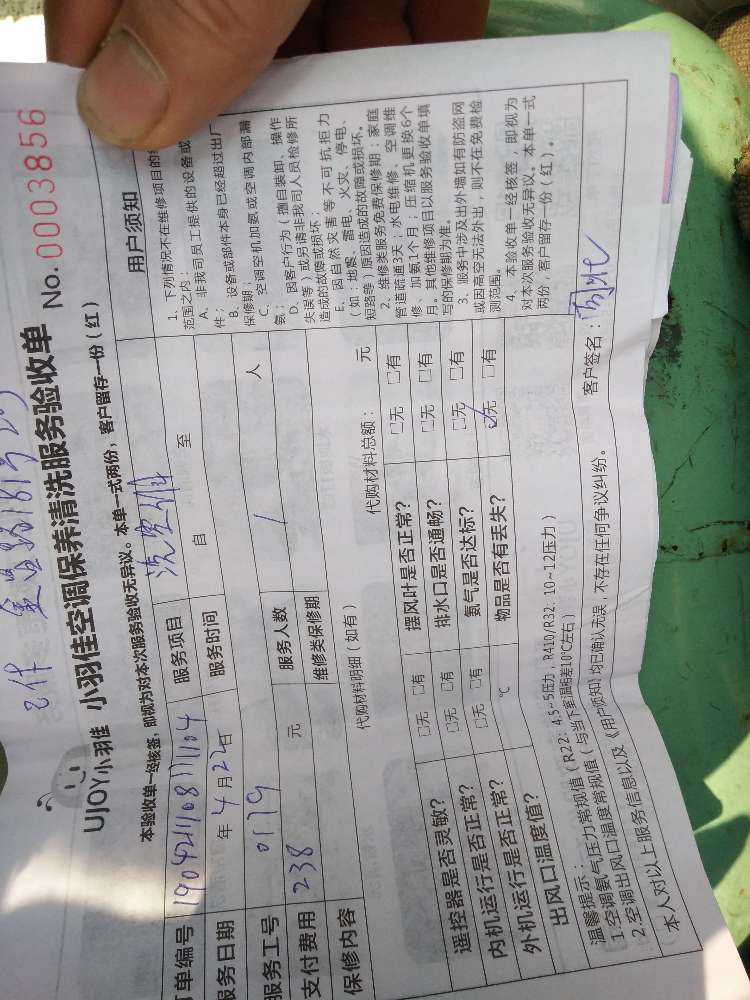 UJOY小羽佳 小羽佳空调保养清洗服务验收单 No. 0003856
本验收单一经核签,即视为对本次服务验收无异议。本单一式两份,客户留存一份(红)
订单编号 服务项目 洗空调
服务日期 年 4 月 22 日 服务时间 自 至
服务工号 0179 服务人数 1 人
支付费用 238 元 维修类保修期
保修内容 代购材料明细(如有) 代购材料总额: 元
遥控器是否灵敏? □无 □有 摆风叶是否正常? □无 □有
内机运行是否正常? □无 □有 排水口是否通畅? □无 □有
外机运行是否正常? □无 □有 氨气是否达标? □无 □有
出风口温度值? ℃ 物品是否有丢失? ☑无 □有
用户须知
1、下列情况不在维修项目的
范围之内:
A、非我司员工提供的设备或
件;
B、设备或部件本身已经超过出厂
保修期;
C、空调空机加氨或空调内部漏
氨;
D、因客户行为(擅自装卸、操作
失误等)或另请非我司人员检修所
造成的故障或损坏;
E、因自然灾害等不可抗拒力
(如:地震、雷电、火灾、停电、
短路等)原因造成的故障或损坏。
2、维修类服务免费保修期:家庭
管道疏通3天;水电维修、空调维
修、加氨1个月;压缩机更换6个
月。其他维修项目以服务验收单填
写的保修期为准。
3、服务中涉及出外墙如有防盗网
或因高空无法外出,则不在免费检
测范围。
4、本验收单一经核签,即视为
对本次服务验收无异议。本单一式
两份,客户留存一份(红)。
温馨提示:
1.空调氨气压力常规值(R22:4.5~5压力、R410/R32:10~12压力)
2.空调出风口温度常规值(与当下室温相差10℃左右)
本人对以上服务信息以及《用户须知》均已确认无误,不存在任何争议纠纷。 客户签名: